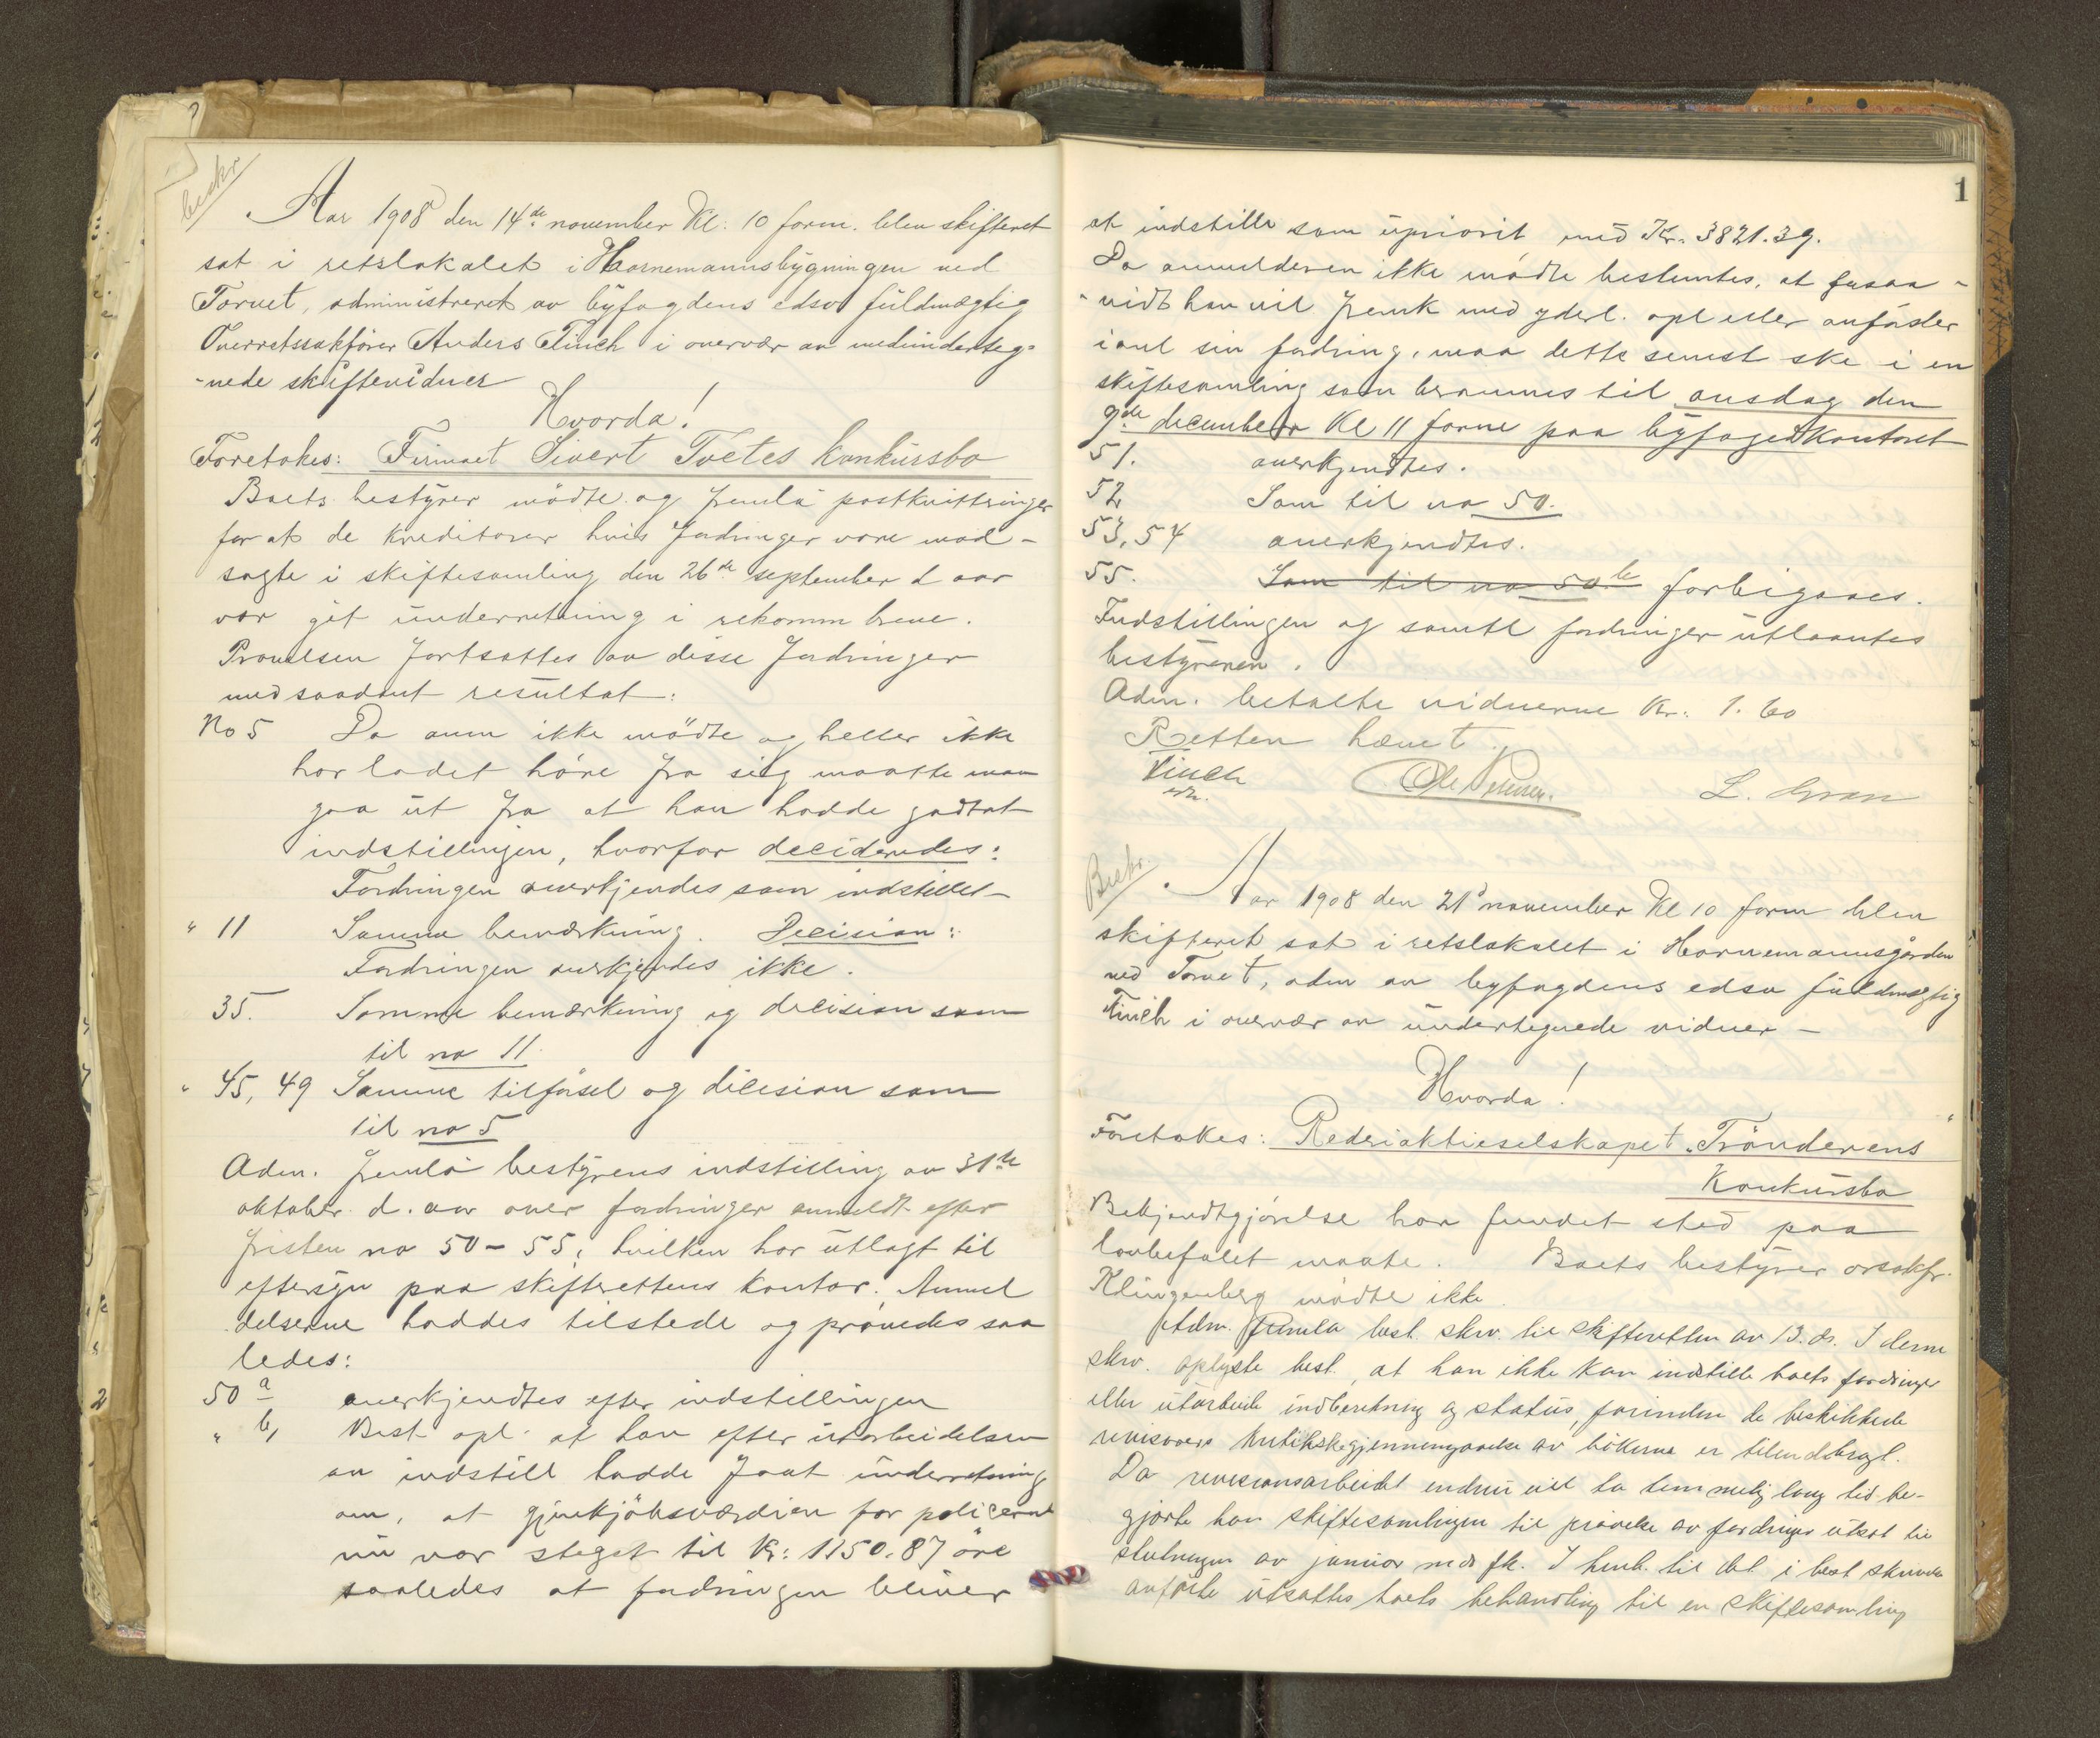 beskr
Aar 1908 den 14de november Kl: 10 form. blev skifteret
sat i retslokalet i Hornemannsbygningen ved
Torvet, administreret av byfogdens edsv fuldmægtig
Overretssakfører Anders Finch i overvær av medunderteg-
-nede skiftevidner
Hvorda!
Foretokes: Firmaet Sivert Tvetes konkursbo
Boets bestyrer mödte og fremla postkvitteringer
for at de kreditorer hvis fordringer vare mod-
sagte i skiftesamling den 26de september d aar
var git underretning i rekomm breve.
Prövelsen fortsattes av disse fordringer
med saadant resultat:
No 5 Da anm ikke mödte og heller ikke
har ladet höre fra sig maatte man
gaa ut fra at han hadde godtat
indstillingen, hvorfor decideredes:
Fordringen anerkjendes som indstillet
" 11 Samme bemærkning. Decision:
Fordringen anerkjendes ikke.
35. Samme bemærkning og decision som
til no 11.
" 45, 49 Samme tilförsel og decision som
til no 5
Adm. fremla bestyrens indstilling av 31te
oktober d. aar over fordringer anmeldt efter
fristen no 50-55, hvilken har utlagt til
eftersyn paa skifterettens kontor. Anmel
delserne haddes tilstede og prövedes saa
ledes:
50 a anerkjendtes efter indstillingen
" b, Best opl. at han efter utarbeidelsen
av indstill hadde faat underretning
om, at gjenkjöbsværdien for policerne
nu var steget til Kr: 1150.87 öre
saaledes at fordringen bliver
1
at indstille som uprior­it med Kr. 3821.39.
Da anmelderen ikke mödte bestemtes, at forsaa-
-vidt han vil fremk med yderl. opl eller anförsler
i anl sin fordring, maa dette senest ske i en
skiftesamling som berammes til onsdag den
9de december Kl 11 form paa byfogedkontoret
51. anerkjendtes.
52 Som til no 50.
53, 54 anerkjendtes.
55. Som til no 50 b forbigaaes.
Indstillingen og samtl fordringer utlaantes
bestyreren.
Adm. betalte vidnerne Kr: 1.60
Retten hævet.
Finch Ole Petersen. L.
edsv.
Beskr.
Aar 1908 den 21d november Kl 10 form blev
skifteret sat i retslokalet i Hornemannsgården
ved Torvet, adm av byfogdens edsv fuldmægtig
Finch i overvær av undertegnede vidner -
Hvorda!
Foretokes: Rederiaktieselskapet "Trönderens"
Konkursbo
Bekjendtgjörelse har fundet sted paa
lovbefalet maate. Boets bestyrer orsakf.
Klingenberg mödte ikke.
Adm. fremla best. skriv. til skifteretten av 13. ds. I denne
skriv. oplyste best., at han ikke kan indstille boets fordringer
eller utarbeide indberetning og status, forinden de beskikkede
revisorers kritiske gjennemgaaelse av bökerne er tilendebragt.
Da revisionsarbeidet endnu vil ta temmelig lang tid be-
gjærte han skiftesamlingen til prövelse av fordringer utsat til
slutningen av januar mds fk. I henh. til det i best skrivelse
anförte utsattes boets behandling til en skiftesamling